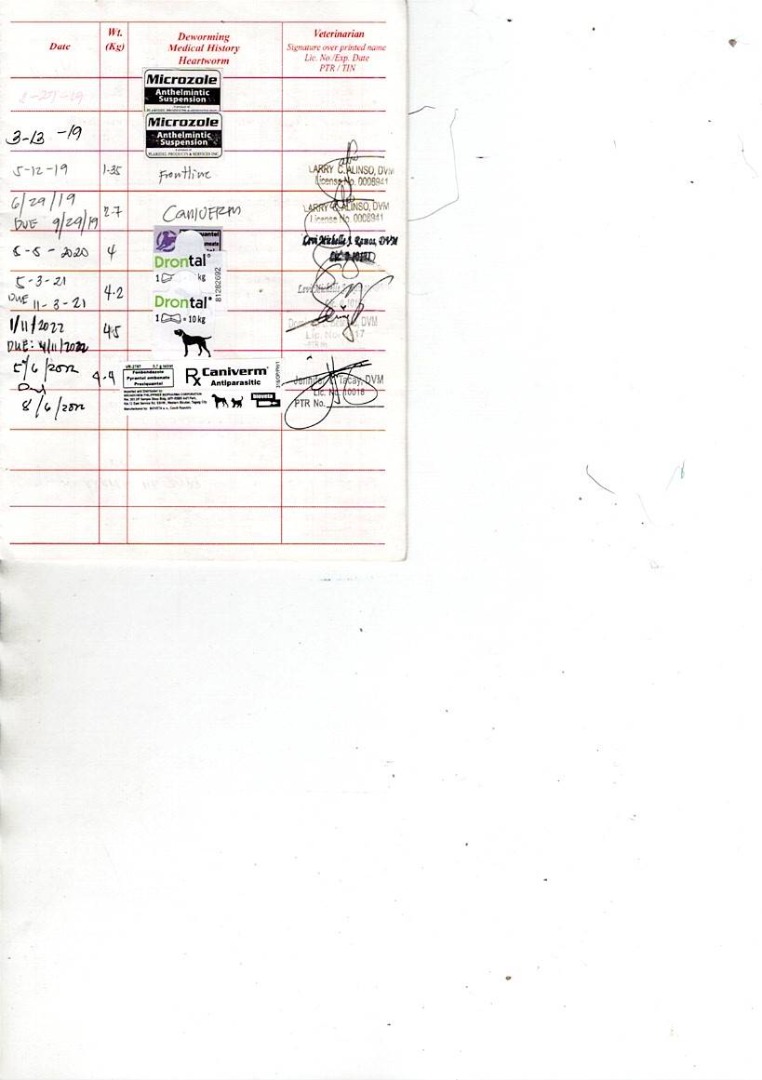 Date
Wt.
(Kg)
Deworming
Medical History
Heartworm
Veterinarian
Signature over printed name
Lic. No./Exp. Date
PTR / TIN
Microzole
Anthelmintic
Suspension
3-13-19
Microzole
Anthelmintic
Suspension
5-12-19
1.35
Frontline
LARRY C. ALINSO, DVM
License No. 0008941
6/29/19
DUE 9/29/19
2.7
CANIVERM
LARRY C. ALINSO, DVM
License No. 0008941
5-5-2020
4
Drontal
1 kg
81282692
5-3-21
DUE 11-3-21
4.2
Drontal
1 = 10 kg
1/11/2022
DUE: 4/11/2022
4.5
DVM
5/6/2022
8/6/2022
4.9
Fenbendazole
Pyrantel embonate
Praziquantel
Rx Caniverm
Antiparasitic
Bioveta
Tacay, DVM
Lic. No. 10018
PTR No.